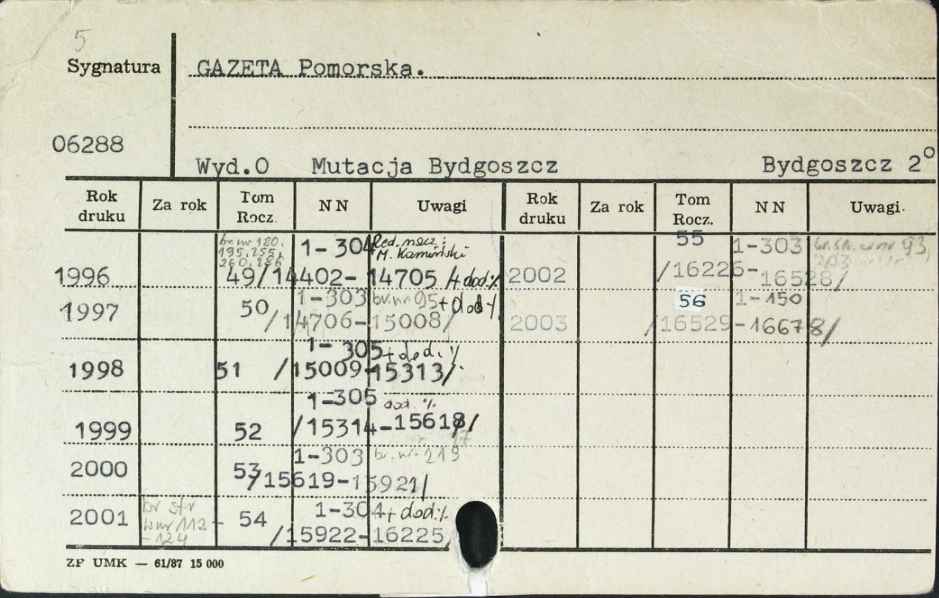 5
Sygnatura
GAZETA Pomorska.
06288
Wyd.O Mutacja Bydgoszcz Bydgoszcz 2°
Rok druku Za rok Tom Rocz. NN Uwagi Rok druku Za rok Tom Rocz. NN Uwagi.
br. nr 180,
195, 255,
260, 266
1-304 Red. nacz.:
M. Kamiński
1996 49/14402-14705/+dod. %
1-303 br. nr 95+dod %
1997 50 /14706-15008/
1-305+dod. %
1998 51 /15009-15313/.
1-305 dod. %
1999 52 /15314-15618/
1-303 br. nr 219
2000 53/15619-15921/
br str
w nr 112-
-124
1-304+dod. %
2001 54 /15922-16225/
55 1-303 br. str. w nr 93,
203
2002 /16226-16528/
56 1-150
2003 /16529-16678/
ZP UMK — 61/87 15 000